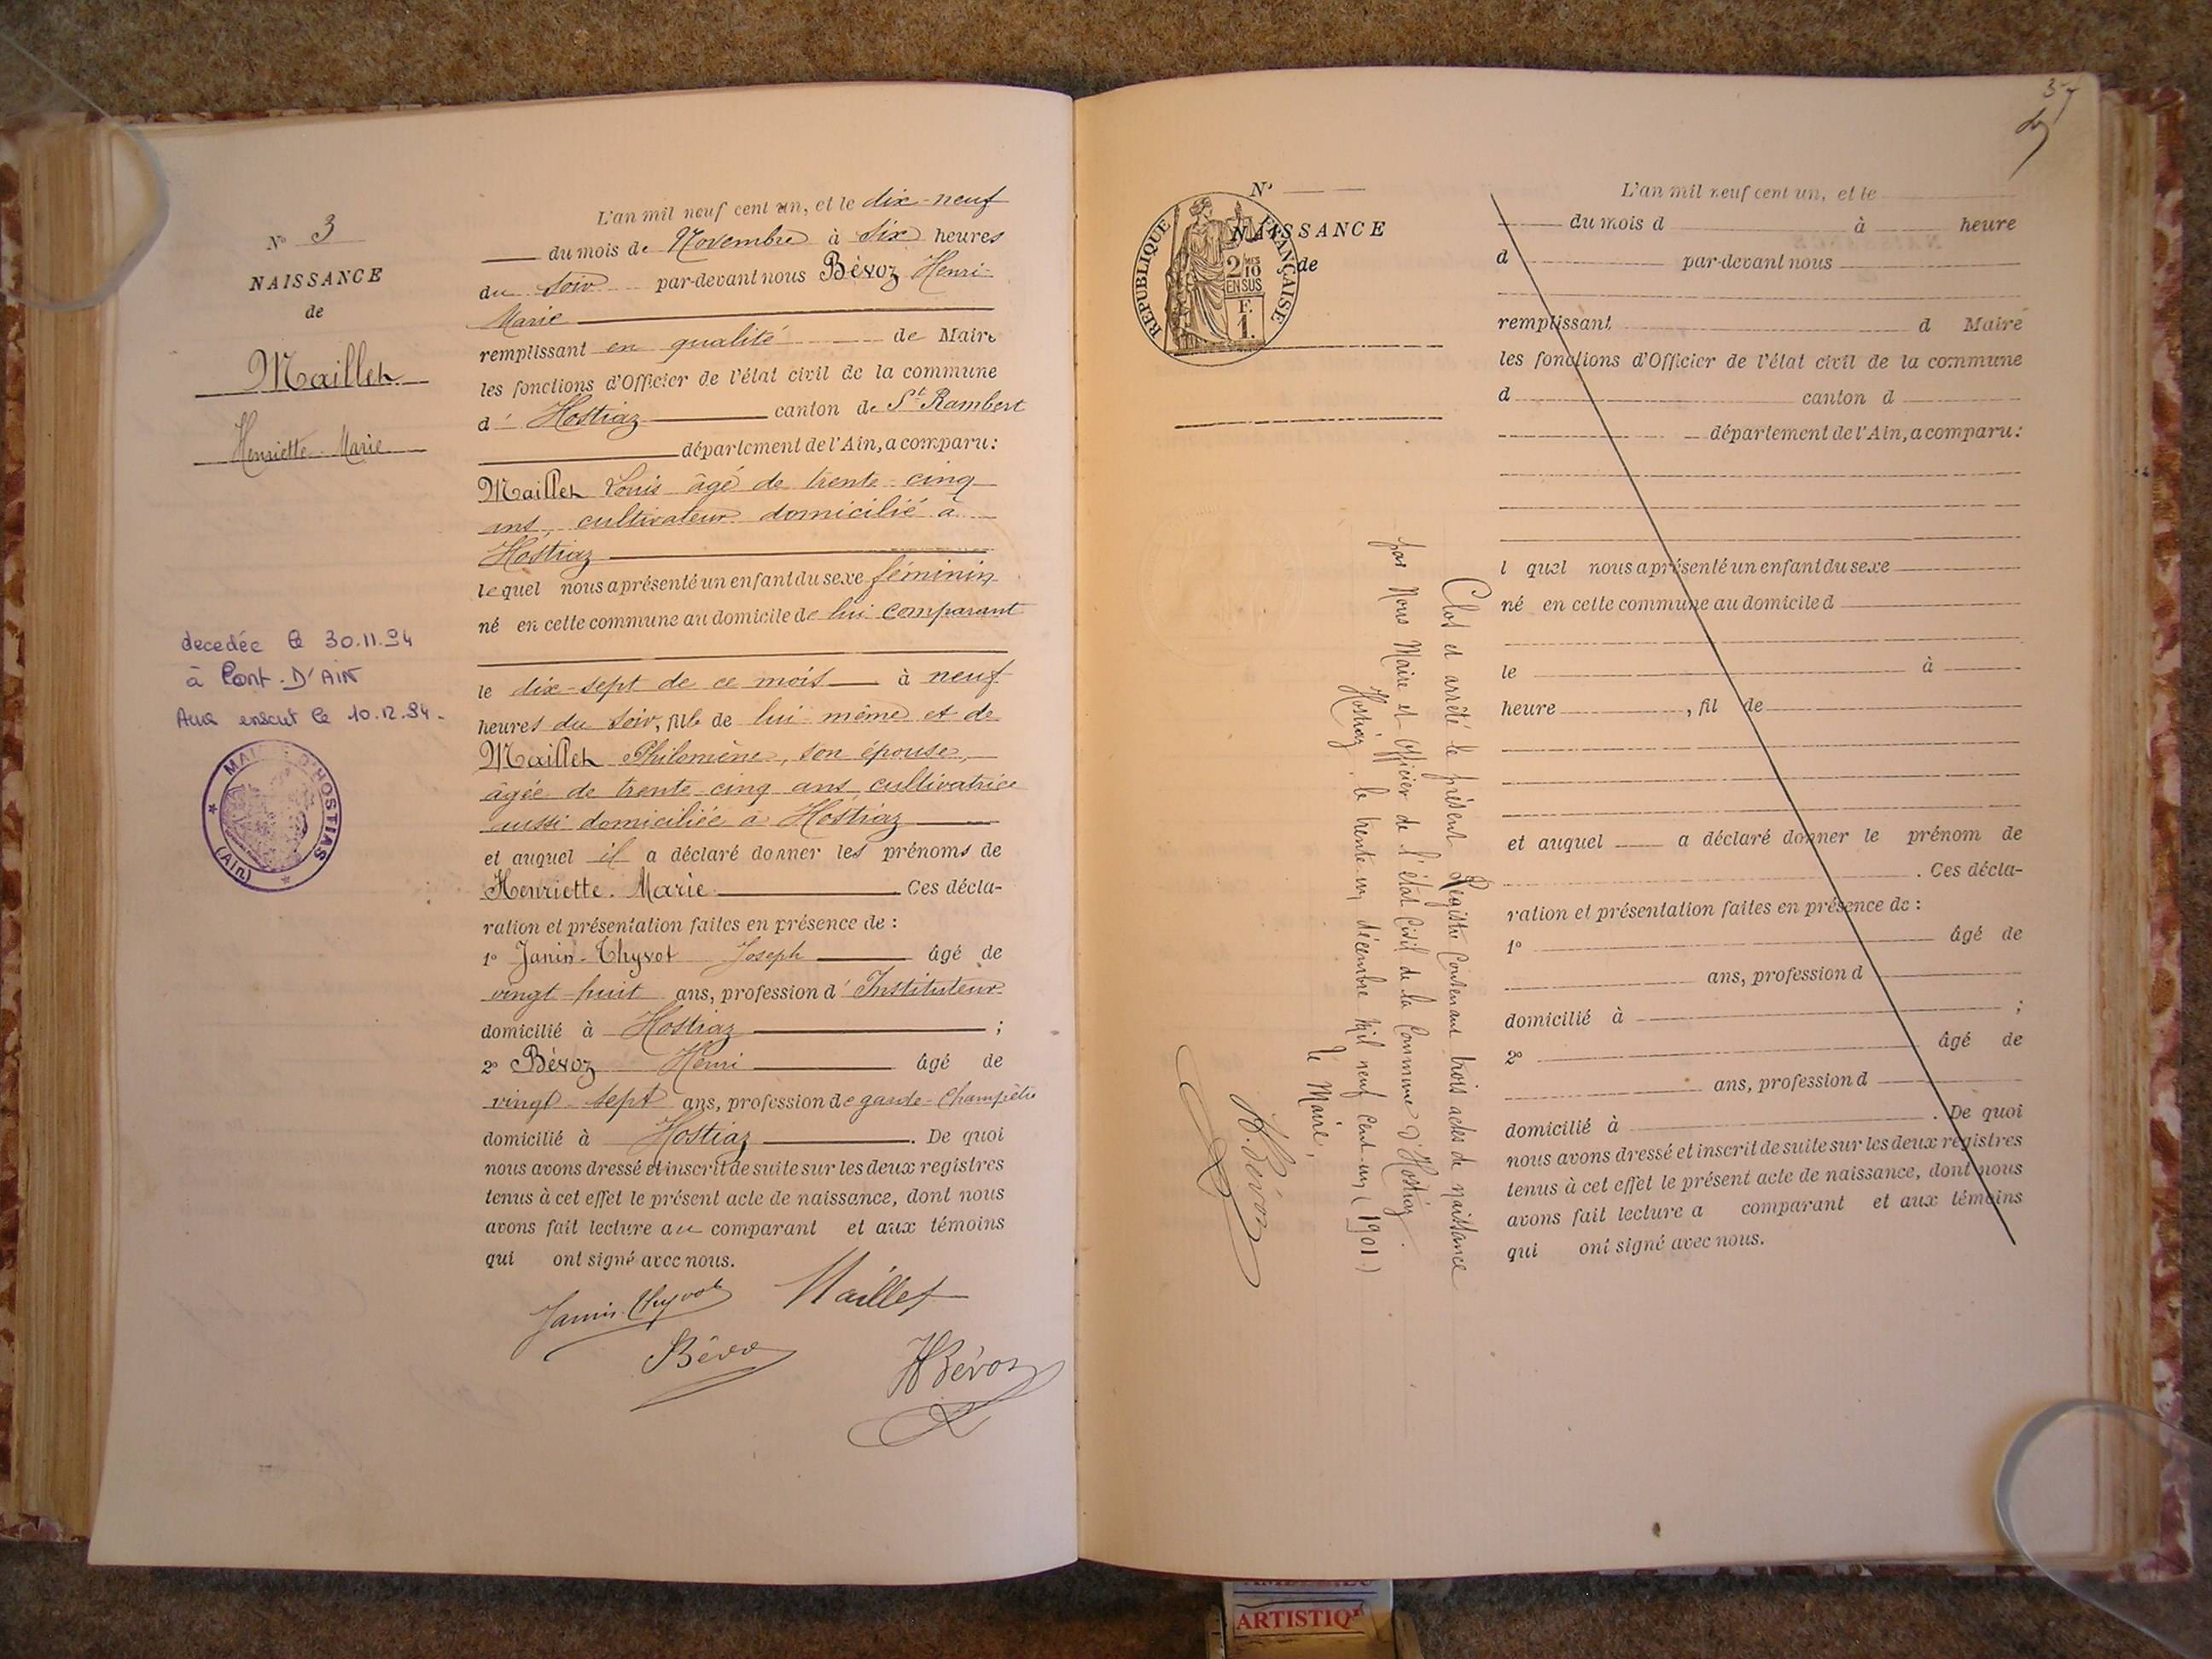 N° 3
NAISSANCE
de
Maillet
Henriette-Marie
decedée le 30.11.94
à Pont-D'AIN
le 10.12.94.
MAIRIE D'HOSTIAS
(AIN)
L'an mil neuf cent un, et le dix-neuf
du mois de Novembre à six heures
du soir par-devant nous Bévoz Henri-
Marie
remplissant en qualité de Maire
les fonctions d'Officier de l'état civil de la commune
d' Hostiaz canton de St Rambert
département de l'Ain, a comparu:
Maillet Louis âgé de trente-cinq
ans, cultivateur domicilié à
Hostiaz
lequel nous a présenté un enfant du sexe féminin
né en cette commune au domicile de lui comparant
le dix-sept de ce mois à neuf
heures du soir, fille de lui-même et de
Maillet Philomène, son épouse,
âgée de trente-cinq ans, cultivatrice
aussi domiciliée à Hostiaz
et auquel il a déclaré donner les prénoms de
Henriette-Marie. Ces décla-
ration et présentation faites en présence de:
1° Janin-Thyvot Joseph âgé de
vingt-huit ans, profession d'Instituteur
domicilié à Hostiaz ;
2° Bévoz Henri âgé de
vingt-sept ans, profession de garde-Champêtre
domicilié à Hostiaz. De quoi
nous avons dressé et inscrit de suite sur les deux registres
tenus à cet effet le présent acte de naissance, dont nous
avons fait lecture au comparant et aux témoins
qui ont signé avec nous.
Janin-Thyvot Maillet
Bévoz
HBévoz
37
N°
NAISSANCE
de
REPUBLIQUE FRANÇAISE
2/10 EN SUS
F. 1.
L'an mil neuf cent un, et le
du mois d à heure
d par-devant nous
remplissant d Maire
les fonctions d'Officier de l'état civil de la commune
d canton d
département de l'Ain, a comparu:
l quel nous a présenté un enfant du sexe
né en cette commune au domicile d
le à
heure , fil de
et auquel a déclaré donner le prénom de
. Ces décla-
ration et présentation faites en présence de:
1° âgé de
ans, profession d
domicilié à ;
2° âgé de
ans, profession d
domicilié à . De quoi
nous avons dressé et inscrit de suite sur les deux registres
tenus à cet effet le présent acte de naissance, dont nous
avons fait lecture a comparant et aux témoins
qui ont signé avec nous.
Clos et arrêté le présent Registre Contenant trois actes de naissance
par Nous Maire et Officier de l'état Civil de la Commune d'Hostiaz
Hostiaz, le trente-un décembre Mil neuf cent un (1901.)
Le Maire,
H. Bévoz
ARTISTIQ